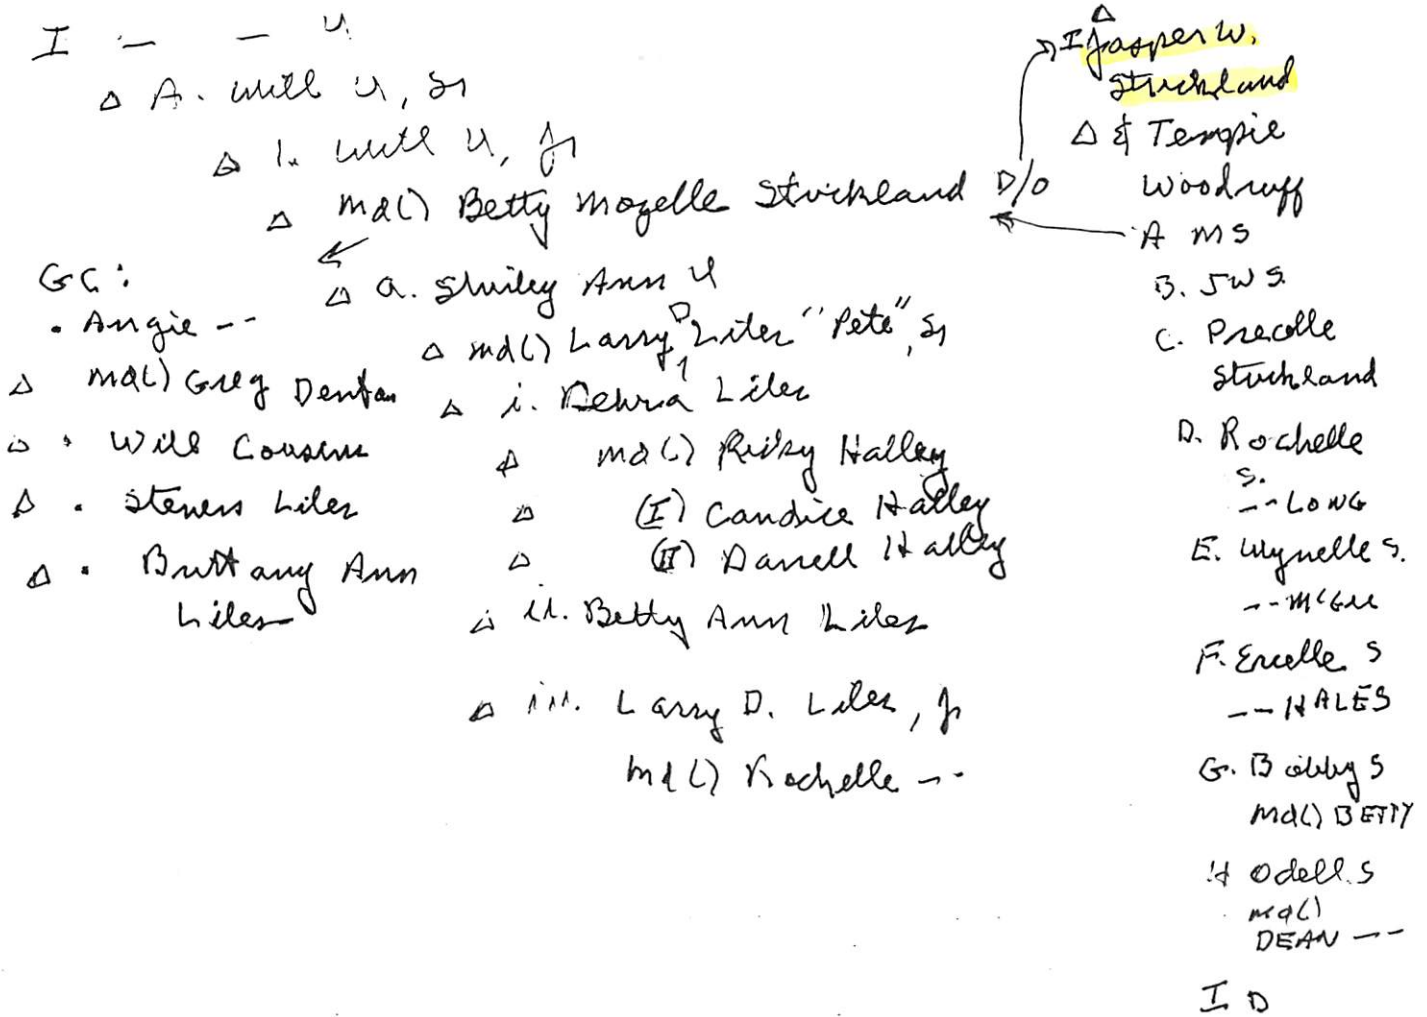 I — — U.
Δ A. Will U, Sr
Δ 1. Will U, Jr
Δ md() Betty Mozelle Strickland D/O
Δ a. Shirley Ann U
Δ md() Larry D Liles "Pete", Sr
Δ i. Debra Liles
Δ md() Ricky Halley
Δ (I) Candice Halley
Δ (II) Darrell Halley
Δ ii. Betty Ann Liles
Δ iii. Larry D. Liles, Jr
md() Rochelle --
GC:
• Angie --
Δ md() Greg Denton
Δ • Will Cousins
Δ • Stevens Liles
Δ • Brittany Ann
Liles
Δ
I Jasper W.
Strickland
Δ & Tempie
Woodruff
A MS
B. JWS.
C.
Strickland
D. Rochelle
S.
-- LONG
E. Wynelle S.
-- McGee
F. Ercelle S
-- HALES
G. Bobby S
md() BETTY
H Odell S
md()
DEAN --
I D